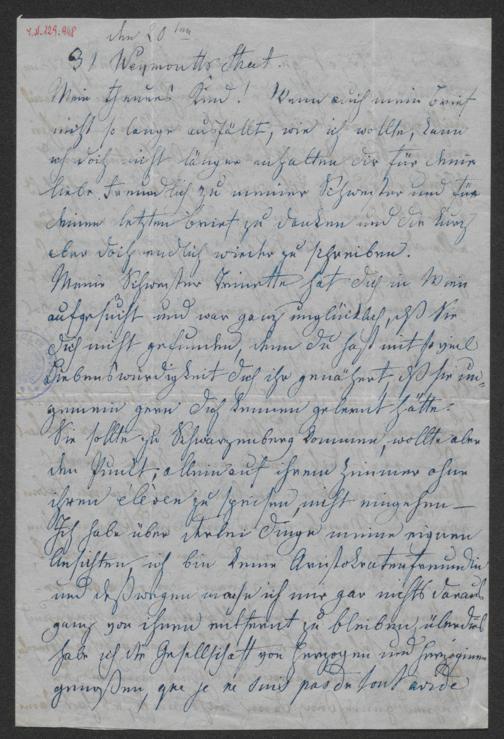 I.N. 129.948
den 20 Juni
31 Weymouth Street.
Mein theures Kind! Wenn auch mein Brief
nicht so lange ausfällt, wie ich wollte, kann
ich doch nicht länger anhalten dir für deine
liebe Freundlich zu meiner Schwester und für
deinen letzten Brief zu danken und dir kurz
aber doch endlich wieder zu schreiben.
Meine Schwester hat dich in Wien
aufgesucht und war ganz unglücklich, dß Sie
dich nicht gefunden, denn du hast mit so viel
Liebenswürdigkeit dich ihr genähert, dß sie un=
gemein gern dich kennen gelernt hätte.
Sie sollte zu Schwarzenberg kommen, wollte aber
den Punct, allein auf ihrem Zimmer ohne
ihren eleven zu speisen, nicht eingehen –
Ich habe über derlei Dinge meine eignen
Ansichten, ich bin keine Aristokratenfreundin
und deßwegen mache ich mir gar nichts daraus
ganz von ihnen entfernt zu bleiben, überdieß
habe ich die Gesellschaft von Herzogen und Herzoginen
genoßen, que je ne suis pas du tout avide